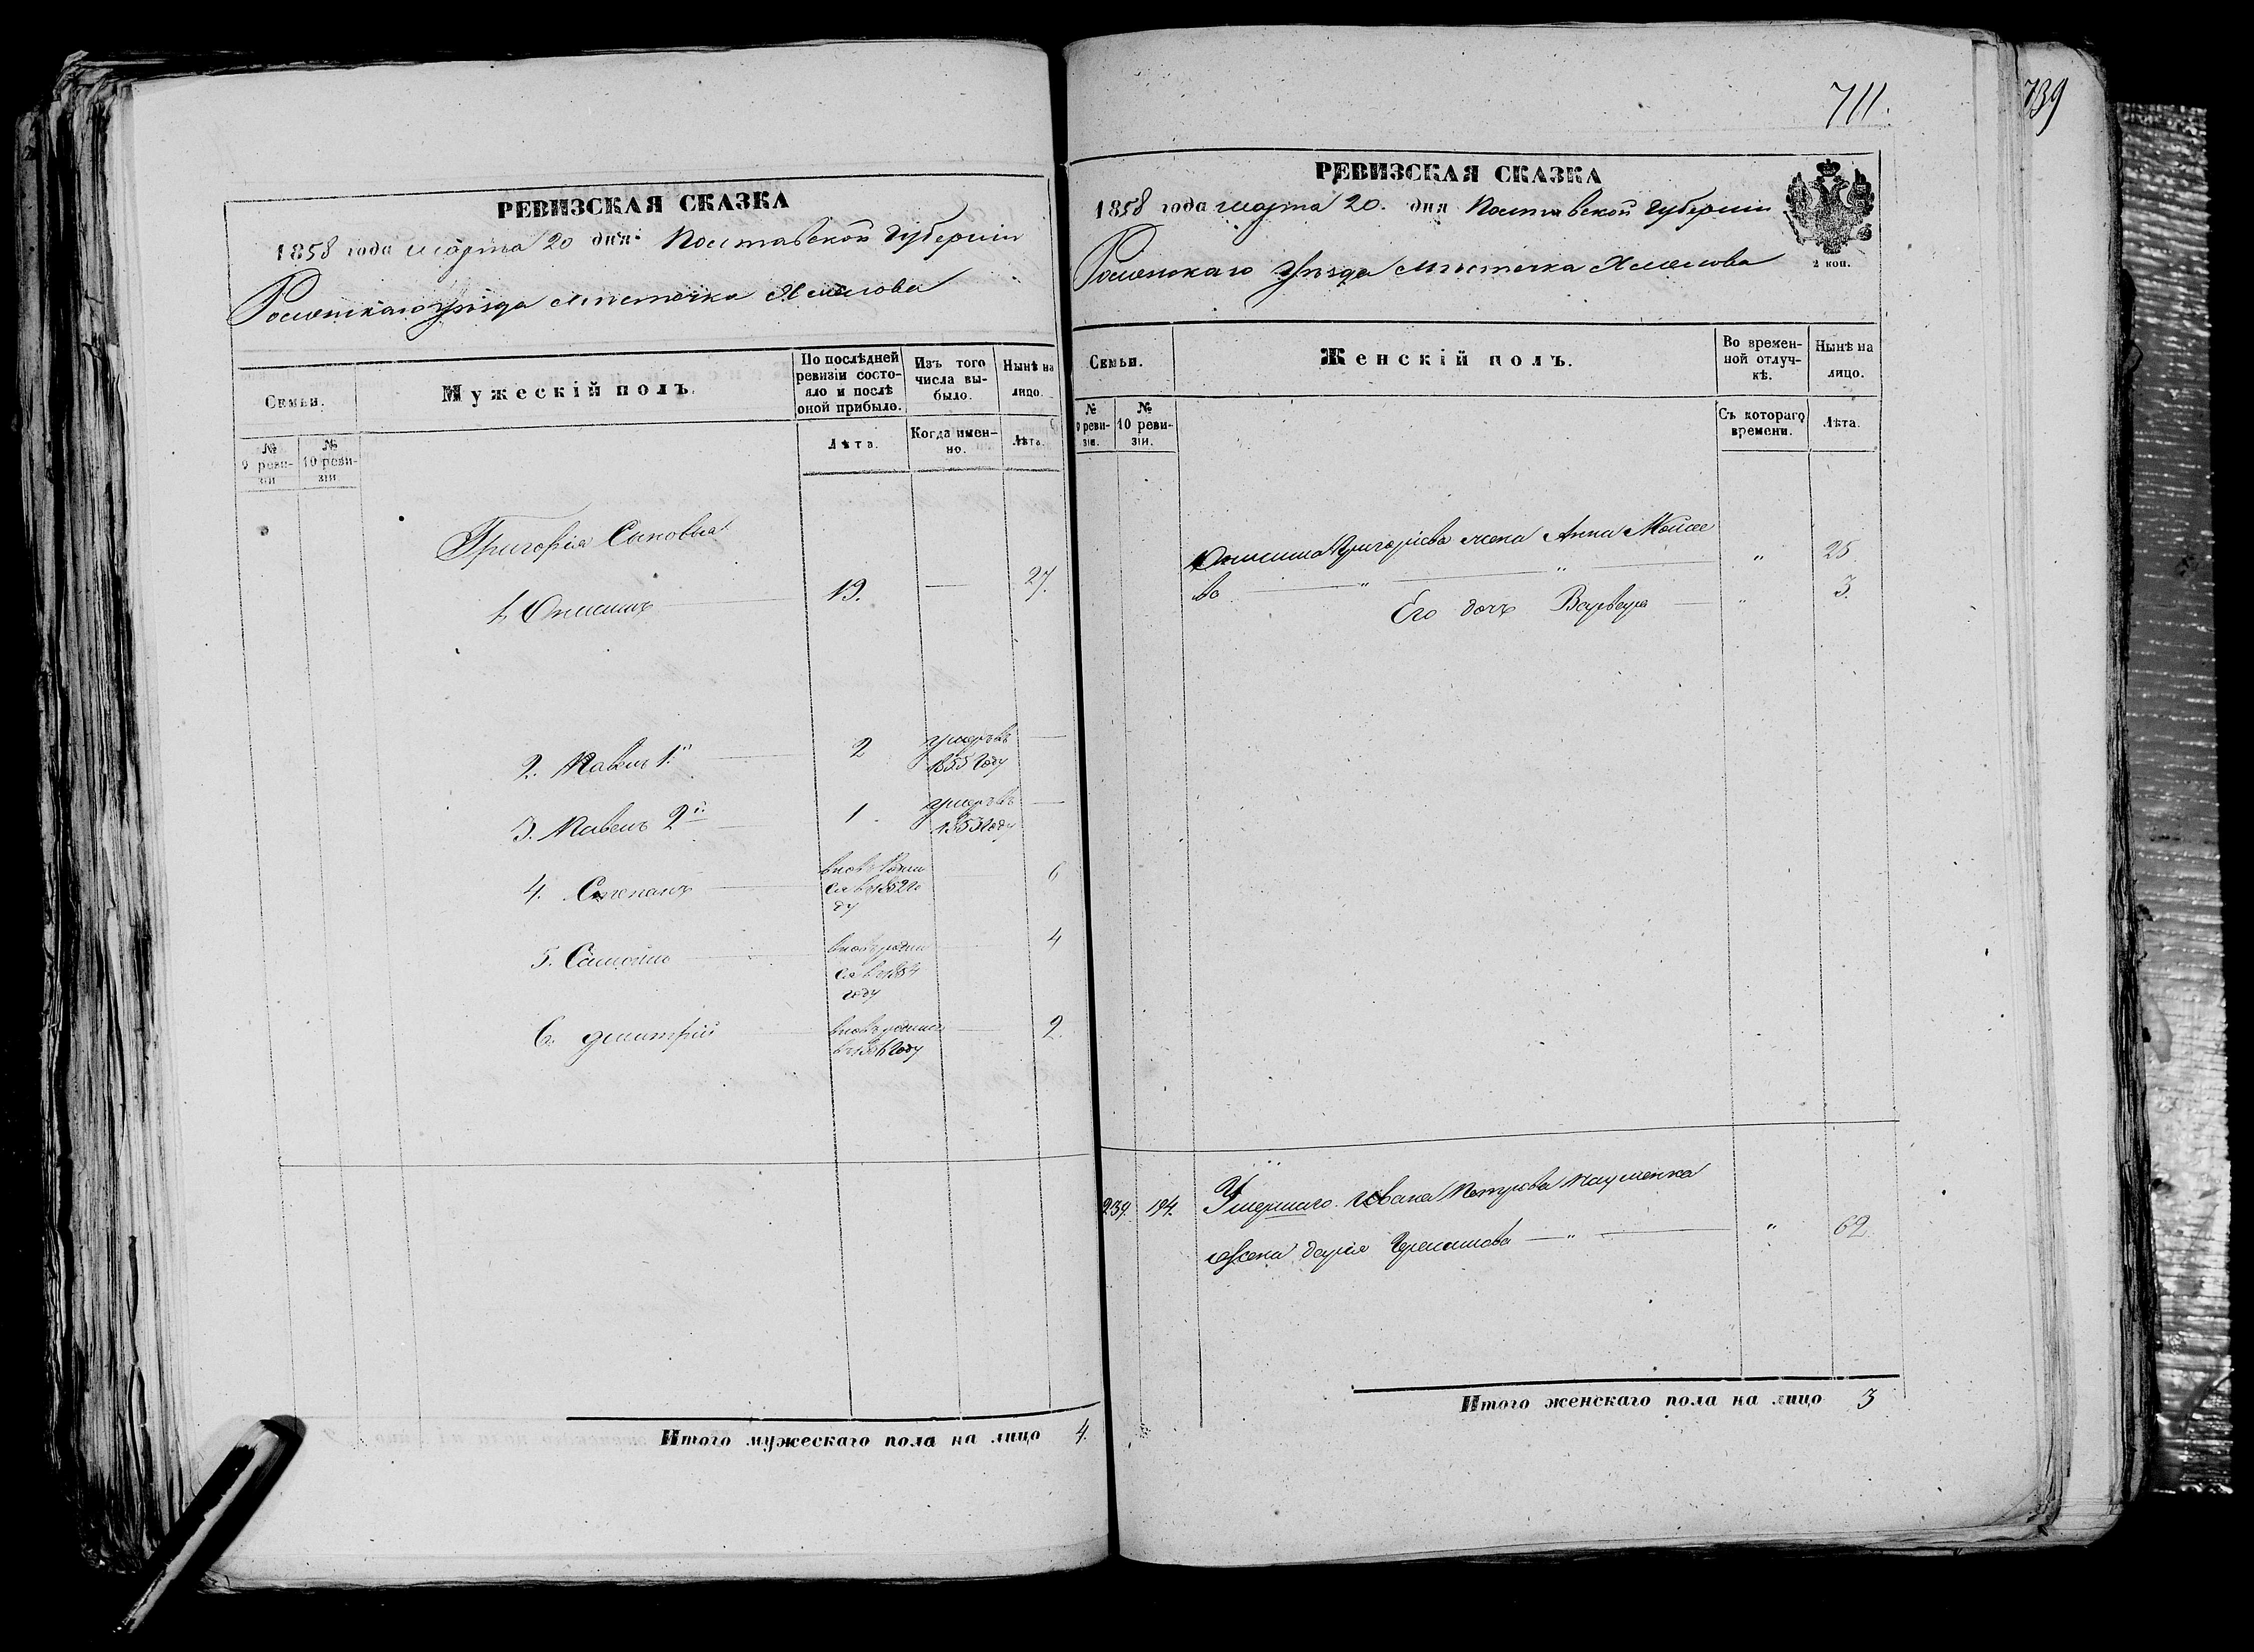 РЕВИЗСКАЯ СКАЗКА
1858 года марта 20 дня Полтавской Губернии
Роменскаго уѣзда мѣстечка Хмелова
Семьи.
Мужескій полъ.
По послѣдней ревизіи состо-
яло и послѣ оной прибыло.
Изъ того числа вы-
было.
Нынѣ на лицо.
№ 9 реви-
зіи
№ 10 реви-
зіи
Лѣта.
Когда имен-
но.
Лѣта.
Григорія Сыновья
1. Онисимъ 19. — 27.
2. Павелъ 1й 2 умеръ въ
1855 Году
3. Павелъ 2й 1 умеръ въ
1853 Году
4. Степанъ вновь Роди 6
ся в 1852 Го
ду
5. Самойло вновь роди 4
ся в 1854
году
6. Дмитрій вновь родился 2
в 1856 Году
Итого мужескаго пола на лицо 4.
711.
739
РЕВИЗСКАЯ СКАЗКА
1858 года марта 20. дня Полтавской Губернии
2 коп.
Роменскаго Уѣзда мѣстечка Хмелова
Семьи.
Женскій полъ.
Во времен-
ной отлуч-
кѣ.
Нынѣ на лицо.
№ 9 реви-
зіи.
№ 10 реви-
зіи.
Съ котораго времени.
Лѣта.
Онисима Григорьева жена Анна Моисе " 25
ва " "
Его дочь Варвара " 3.
239. 194. Умершаго Ивана Петрова Науменка
жена Дарія " " 62
Итого женскаго пола на лицо 3